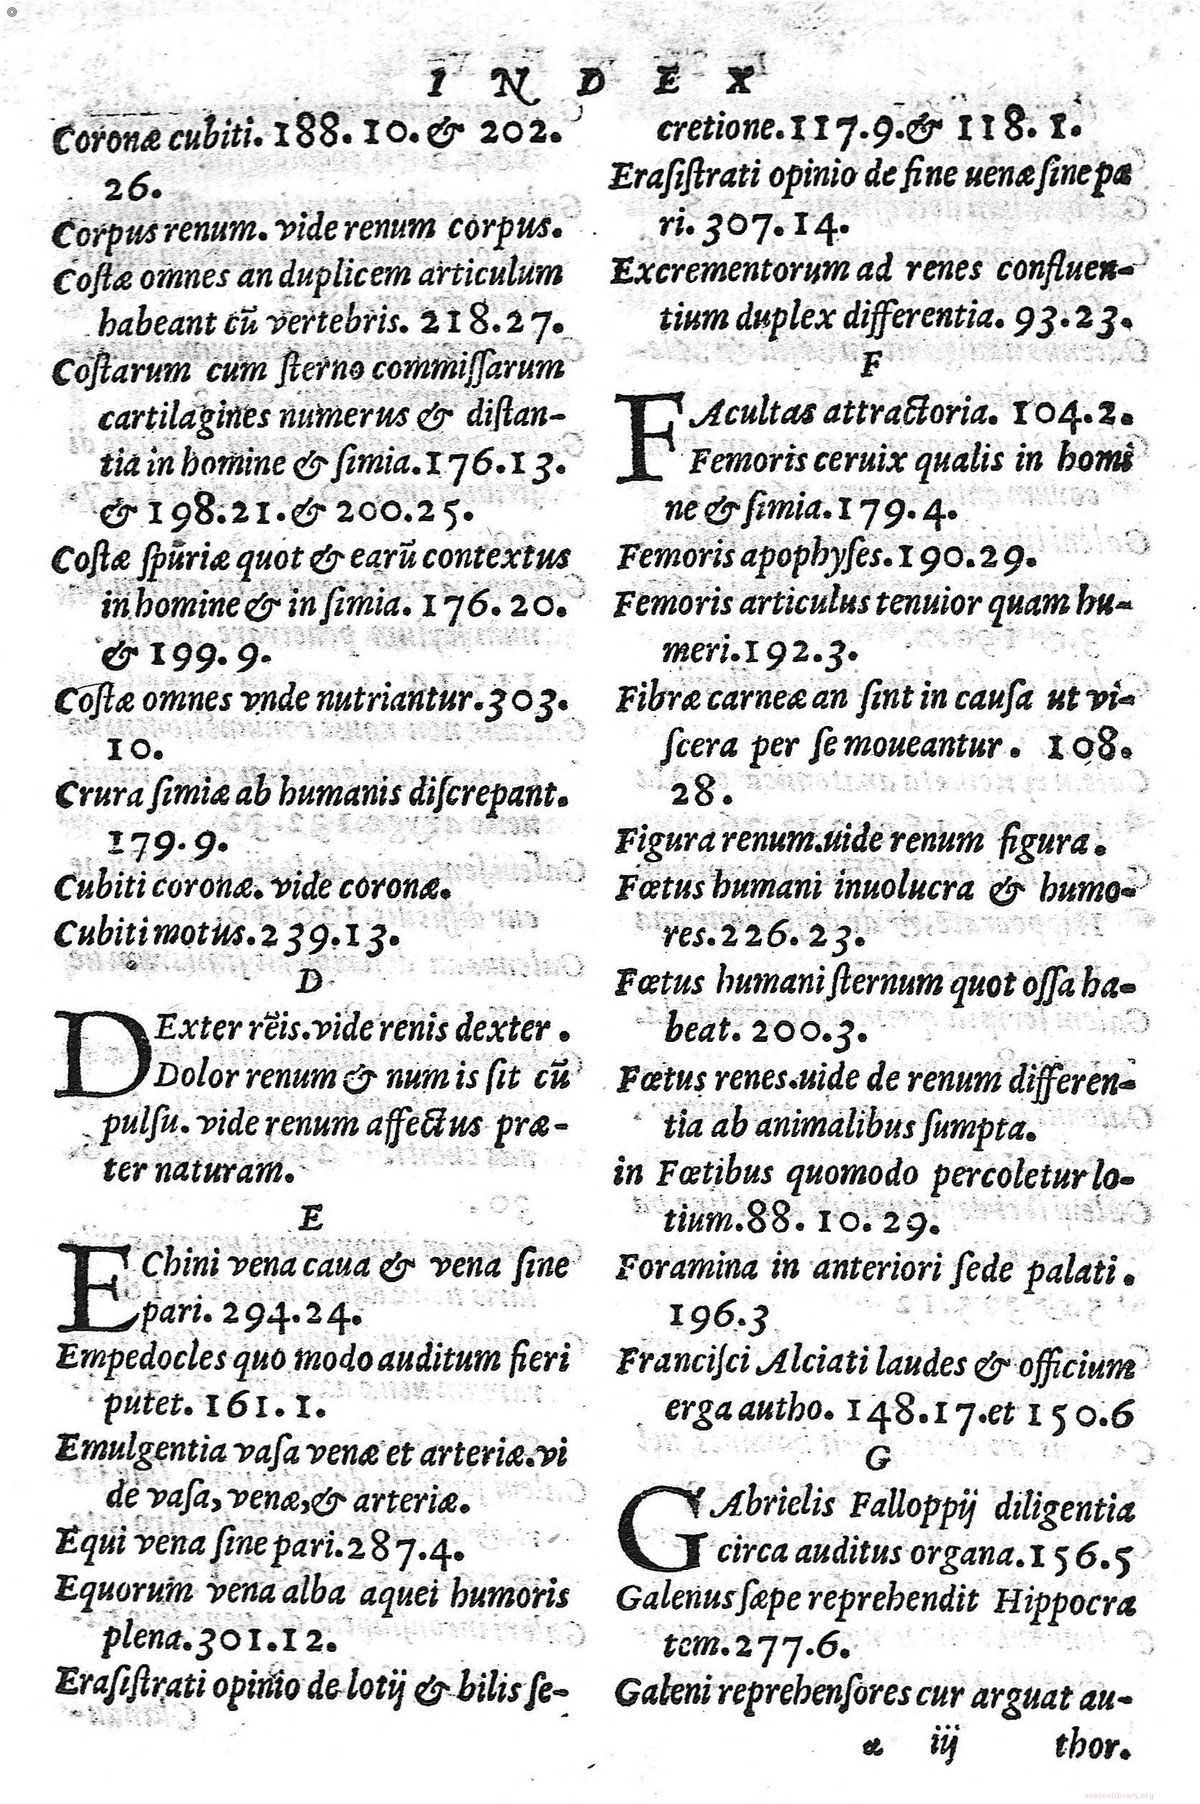 INDEX
Coronæ cubiti. 188. 10. & 202.
26.
Corpus renum. vide renum corpus.
Costæ omnes an duplicem articulum
habeant cū vertebris. 218.27.
Costarum cum sterno commissarum
cartilagines numerus & distan-
tia in homine & simia. 176.13.
& 198.21. & 200.25.
Costæ spuriæ quot & earū contextus
in homine & in simia. 176.20.
& 199.9.
Costæ omnes vnde nutriantur. 303.
10.
Crura simiæ ab humanis discrepant.
179.9.
Cubiti coronæ. vide coronæ.
Cubiti motus. 239.13.
D
DExter rēis. vide renis dexter.
Dolor renum & num is sit cū
pulsu. vide renum affectus præ-
ter naturam.
E
EChini vena caua & vena sine
pari. 294.24.
Empedocles quo modo auditum fieri
putet. 161.1.
Emulgentia vasa venæ et arteriæ. vi
de vasa, venæ, & arteriæ.
Equi vena sine pari. 287.4.
Equorum vena alba aquei humoris
plena. 301.12.
Erasistrati opinio de lotij & bilis se-
cretione. 117.9. & 118. 1.
Erasistrati opinio de fine uenæ sine pa
ri. 307.14.
Excrementorum ad renes confluen-
tium duplex differentia. 93.23.
F
FAcultas attractoria. 104.2.
Femoris ceruix qualis in homi
ne & simia. 179.4.
Femoris apophyses. 190.29.
Femoris articulus tenuior quam hu-
meri. 192.3.
Fibræ carneæ an sint in causa ut vi-
scera per se moueantur. 108.
28.
Figura renum. uide renum figura.
Fœtus humani inuolucra & humo-
res. 226.23.
Fœtus humani sternum quot ossa ha-
beat. 200.3.
Fœtus renes. uide de renum differen-
tia ab animalibus sumpta.
in Fœtibus quomodo percoletur lo-
tium. 88. 10. 29.
Foramina in anteriori sede palati.
196.3
Francisci Alciati laudes & officium
erga autho. 148.17. et 150.6
G
GAbrielis Falloppij diligentia
circa auditus organa. 156.5
Galenus sæpe reprehendit Hippocra
tem. 277.6.
Galeni reprehensores cur arguat au-
a iij thor.
sourcelibrary.org